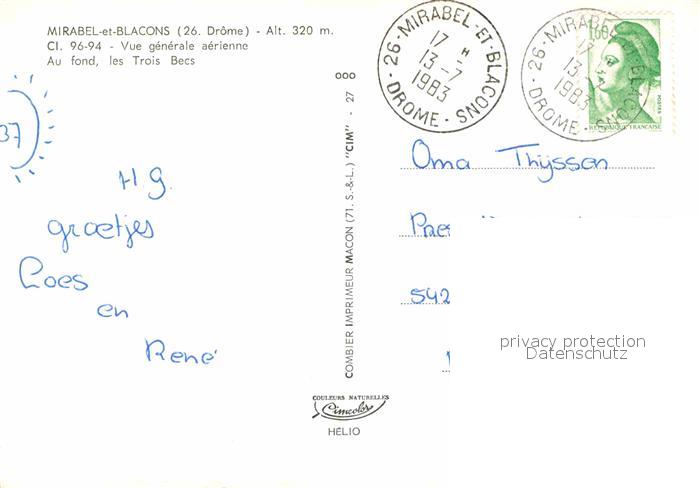 MIRABEL-et-BLACONS (26. Drôme) - Alt. 320 m.
Cl. 96-94 - Vue générale aérienne
Au fond, les Trois Becs
37
H G.
groetjes
Loes
en
René
COMBIER IMPRIMEUR MACON (71. S.-&-L.) "CIM" - 27 ooo
COULEURS NATURELLES
Cimcolor
HÉLIO
26 - MIRABEL-ET-BLACONS
17 H
13-7
1983
DROME
26 - MIRABEL-ET-BLACONS
17
13
1983
DROME
1,60
POSTES
REPUBLIQUE FRANÇAISE
Oma Thijssen
542
privacy protection
Datenschutz